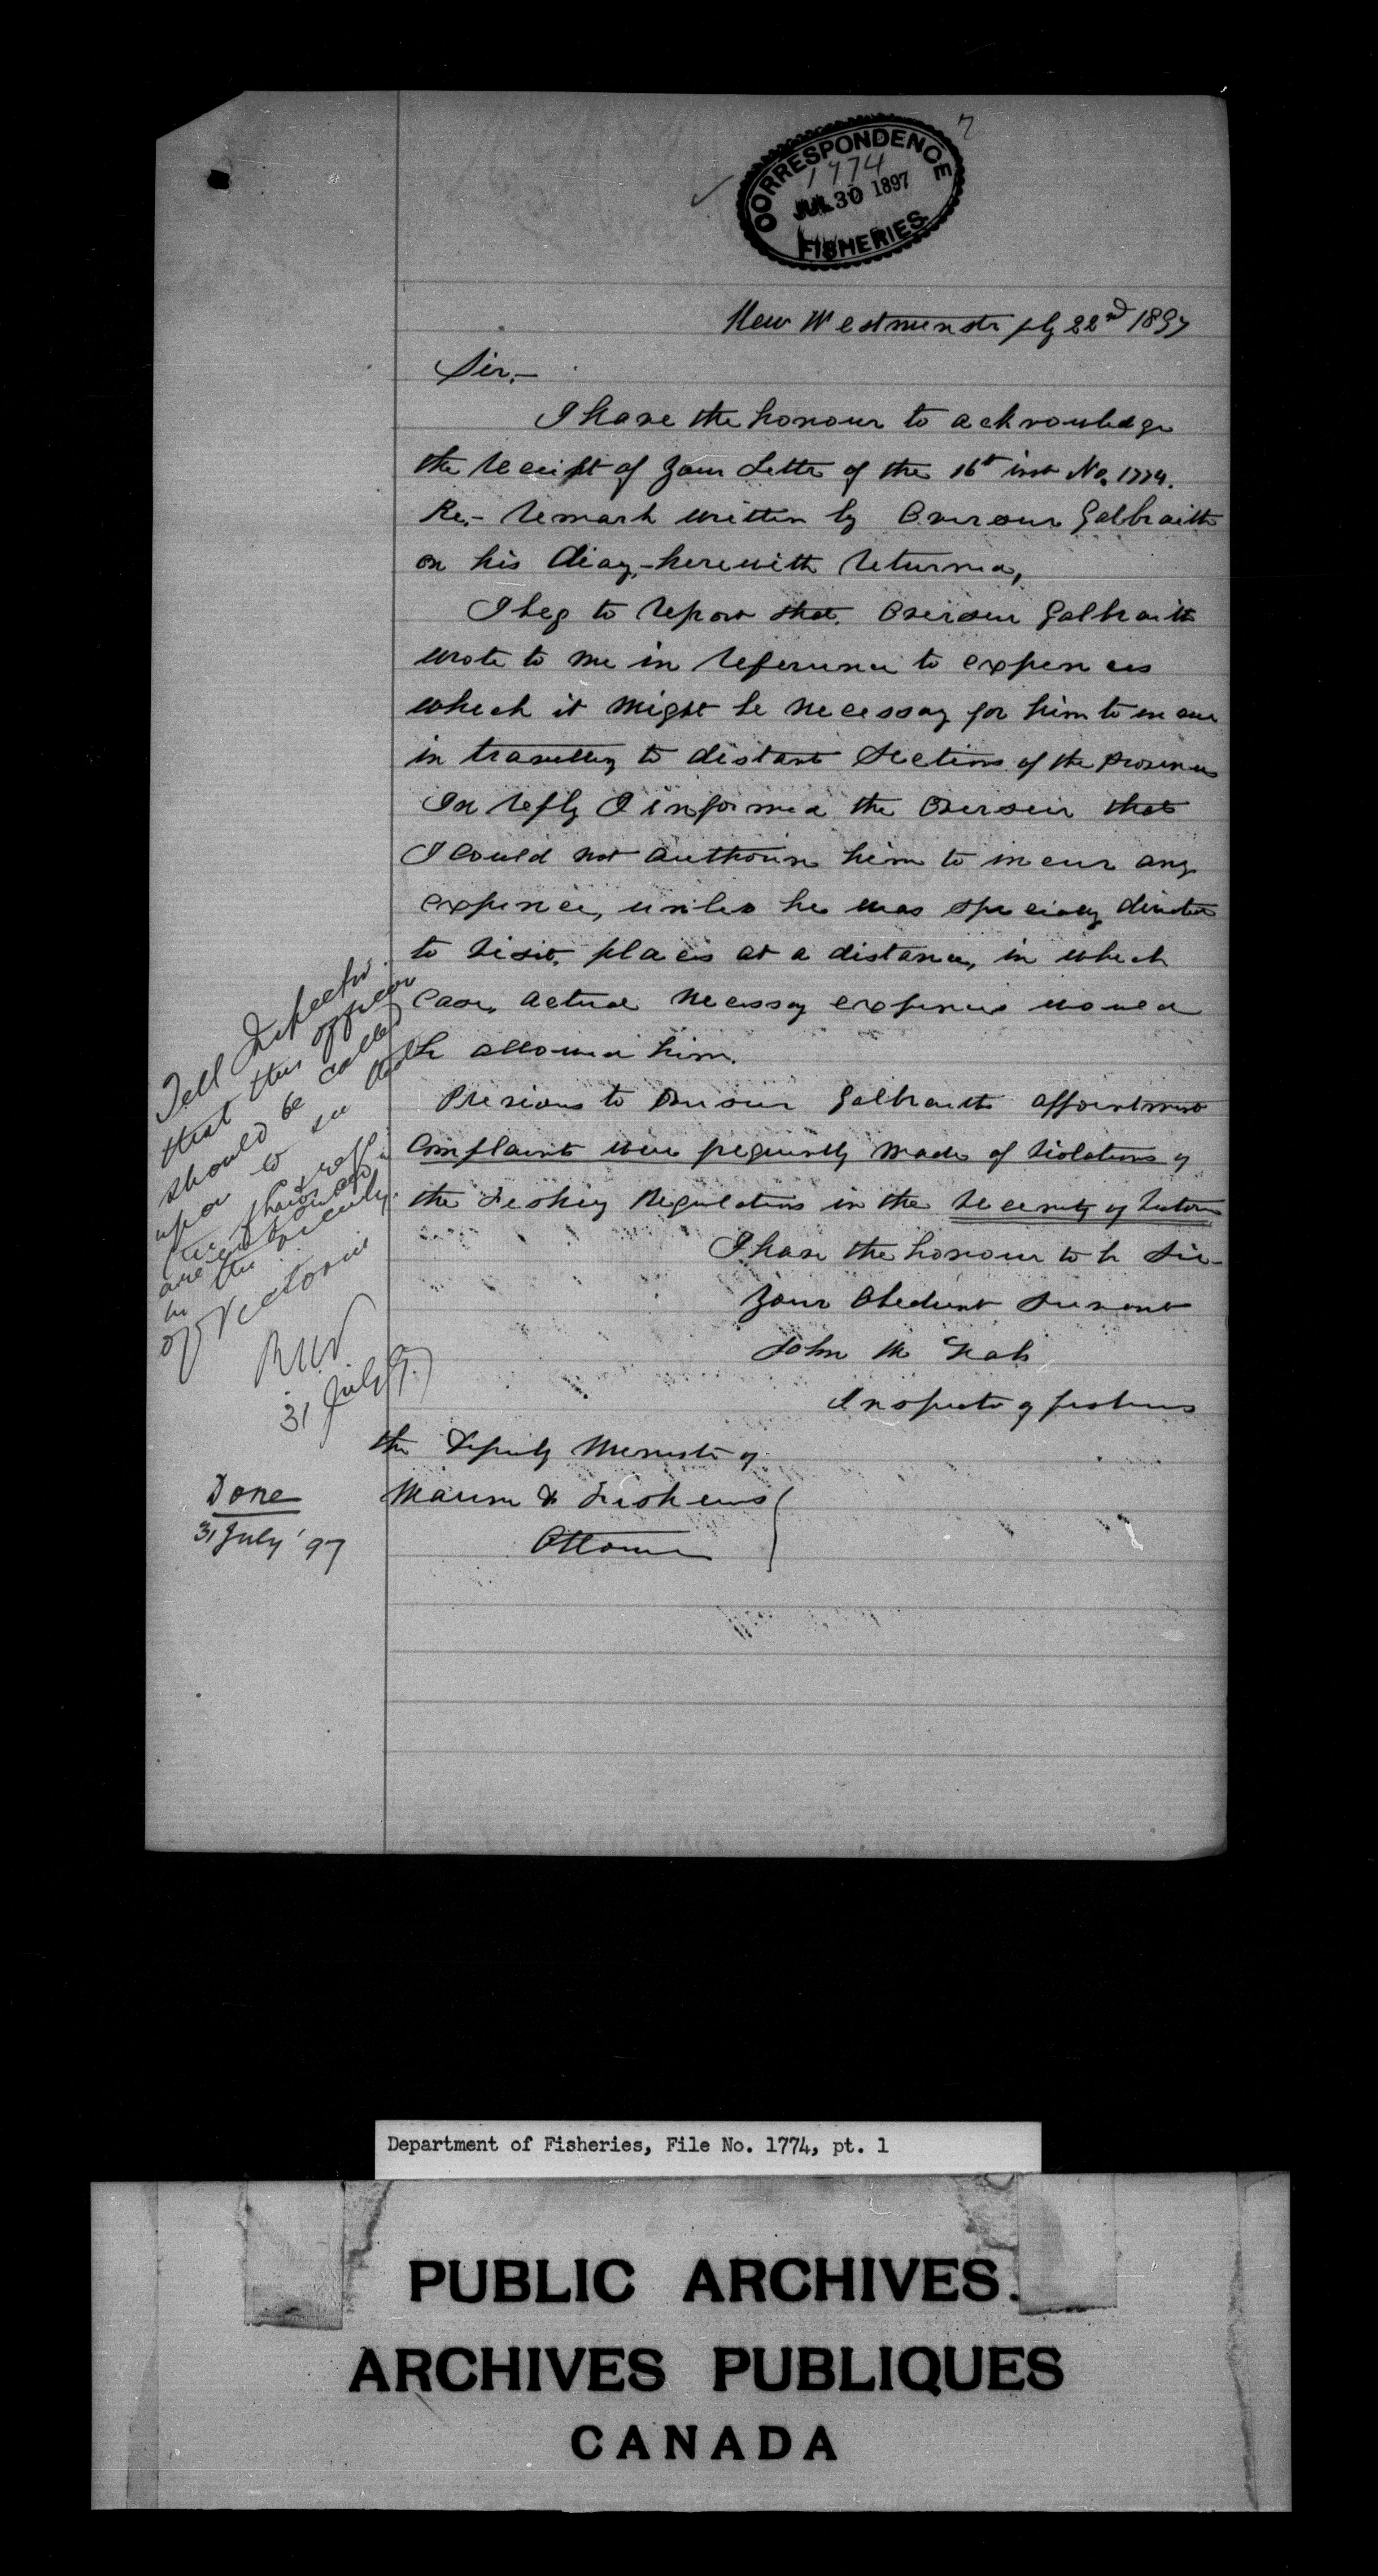 CORRESPONDENCE
1774
JUL 30 1897
FISHERIES
7
New Westminster July 22nd 1897
Sir,-
I have the honour to acknowledge
the receipt of your Letter of the 16th inst No. 1774.
Re,- remark written by Overseer Galbraith
on his diary, herewith returned,
I beg to report that. Overseer Galbraith
wrote to me in reference to expenses
which it might be necessary for him to incur
in travelling to distant Sections of the province
In reply I informed the Overseer that
I could not authorise him to incur any
expense, unless he was specially directed
to visit, places at a distance, in which
case, actual necessary expenses would
be allowed him.
Previous to Overseer Galbraith appointment
Complaints were frequently made of violations of
the Fishery Regulations in the vicinity of Victoria
I have the honour to be Sir-
Your Obedient Servant
John McNab
Inspector of fisheries
the Deputy Minister of
Marine & Fisheries
Ottawa
Tell Inspector
that this officer
should be called
upon to see that
the
are
in the vicinity
of Victoria
31 July 97
Done
31 July '97
Department of Fisheries, File No. 1774, pt. 1
PUBLIC ARCHIVES
ARCHIVES PUBLIQUES
CANADA